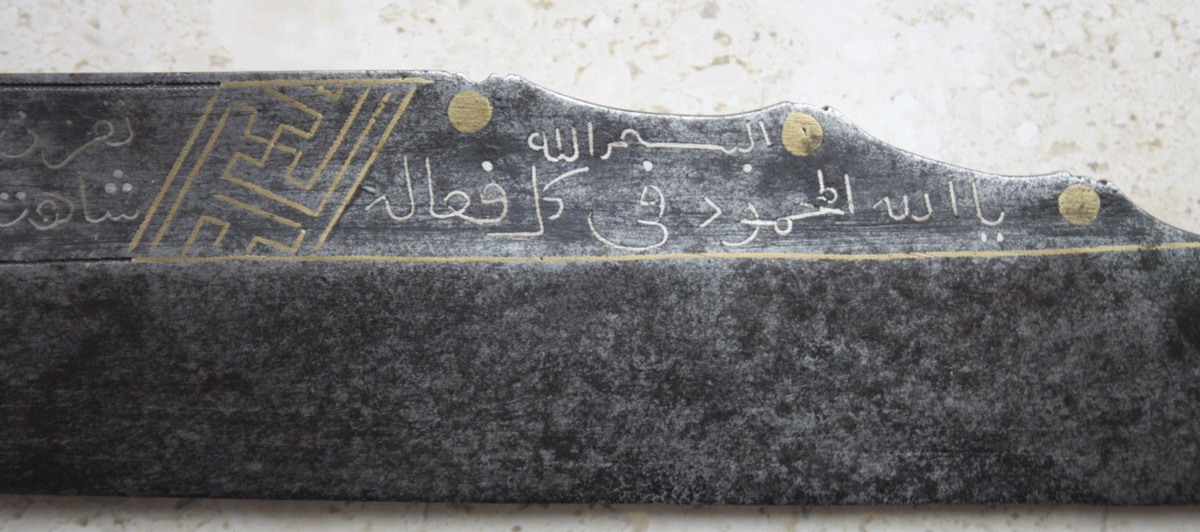 البسم الله
يا الله المحمود في كل فعاله
شاهت